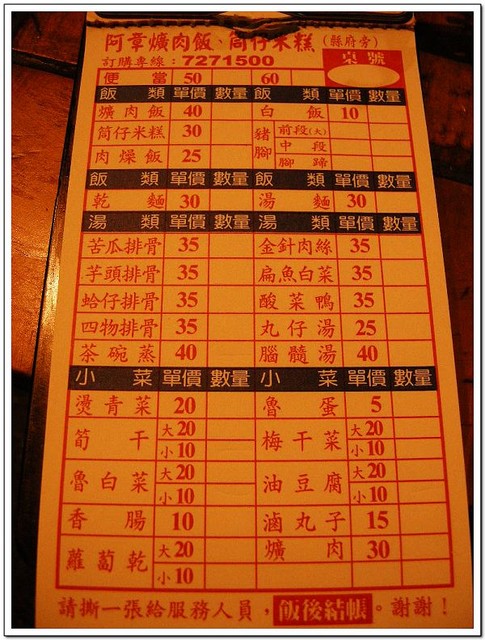 阿章爌肉飯、筒仔米糕(縣府旁)
訂購專線：7271500 桌號
便當 50 60
飯類 單價 數量 飯類 單價 數量
爌肉飯 40 白飯 10
筒仔米糕 30 豬腳 前段(大)
中段
肉燥飯 25 腳蹄
飯類 單價 數量 飯類 單價 數量
乾麵 30 湯麵 30
湯類 單價 數量 湯類 單價 數量
苦瓜排骨 35 金針肉絲 35
芋頭排骨 35 扁魚白菜 35
蛤仔排骨 35 酸菜鴨 35
四物排骨 35 丸仔湯 25
茶碗蒸 40 腦髓湯 40
小菜 單價 數量 小菜 單價 數量
燙青菜 20 魯蛋 5
筍干 大20 梅干菜 大20
小10 小10
魯白菜 大20 油豆腐 大20
小10 小10
香腸 10 滷丸子 15
蘿蔔乾 大20 爌肉 30
小10
請撕一張給服務人員，飯後結帳。謝謝！